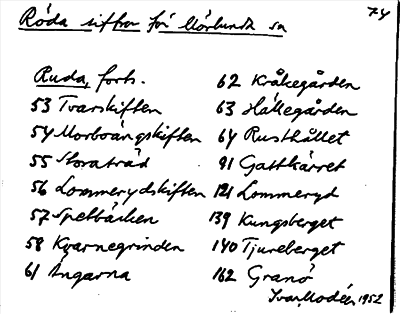 74
Röda siffror för Mörlunda sn
Ruda, forts.
53 Tvärskiften
54 Morboängskiften
55 Storaträd
56 Lommerydskiften
57 Spelbäcken
58 Kvarnegrinden
61 Ängarna
62 Kråkegården
63 Hällegården
64 Rusthållet
91 Gattkärret
121 Lommeryd
139 Kungsberget
140 Tjureberget
162 Granö
Ivar Modéer 1952